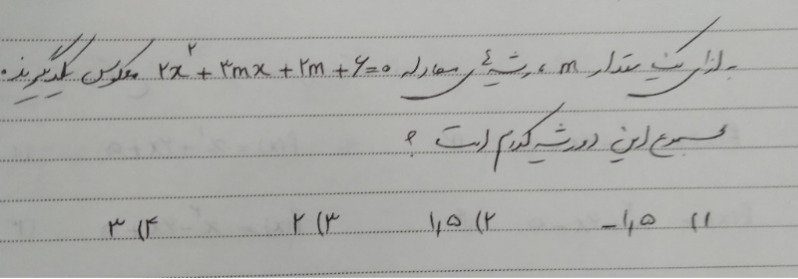 به ازای یک مقدار m، ریشه‌های معادله ۲x² + ۳mx + ۲m + ۶ = ۰ معکوس یکدیگرند.
مجموع این دو ریشه کدام است ؟
۱) -۱,۵ ۲) ۱,۵ ۳) ۲ ۴) ۳